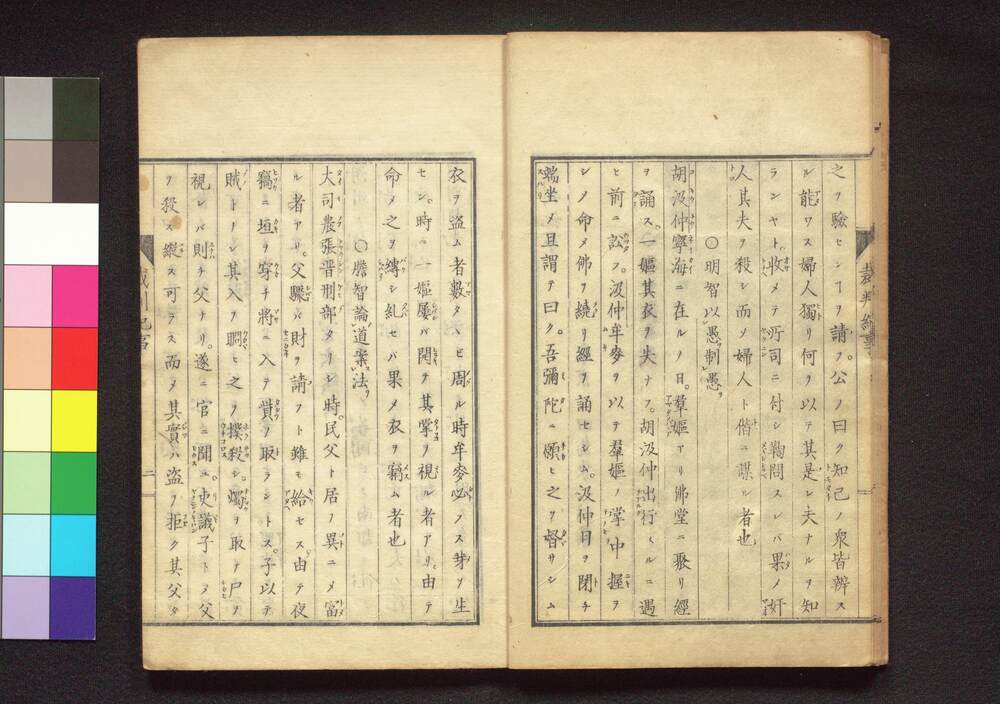 之ヲ驗セシヿヲ請フ。公ノ曰ク知己ノ衆皆辨ス
ル能ワス婦人獨リ何ヲ以テ其是レ夫ナルヲ知
ランヤト收メテ所司ニ付シ鞠問スレバ果メ奸
人其夫ヲ殺シ而メ婦人ト偕ニ謀ル者也
〇明智以愚制愚
胡汲仲寧海ニ在ルノ日。羣嫗アリ佛堂ニ聚リ經
ヲ誦ス。一嫗其衣ヲ失ナフ。胡汲仲出行クルニ遇
ヒ前ニ訟フ。汲仲牟麥ヲ以テ羣嫗ノ掌中ニ握ヲ
シメ命メ佛ヲ繞リ經ヲ誦セシム。汲仲目ヲ閉チ
端坐メ且謂テ曰ク。吾彌陀ニ願ヒ之ヲ督サシム
衣ヲ盗ム者數タヒ周ル時牟麥必ラス芽ヲ生
セン。時ニ一嫗屢バ開テ其掌ヲ視ル者アリ由テ
命メ之ヲ縛シ糺セバ果メ衣ヲ竊ム者也
〇膽智論道案法
大司農張晋刑部タリシ時。民父ト居ヲ異ニメ富
ル者アリ。父驟バ財ヲ請フト雖モ給セス由テ夜
竊ニ垣ヲ穿チ將ニ入テ貲ヲ取ラントス。子以テ
賊トメ其入ヲ瞯ヒ之ヲ撲殺シ。燭ヲ取テ尸ヲ
視レバ則チ父ナリ。遂ニ官ニ聞ニ。吏議子トメ父
ヲ殺ス縱ス可ラス而メ其實ハ盗ヲ拒ク其父タ